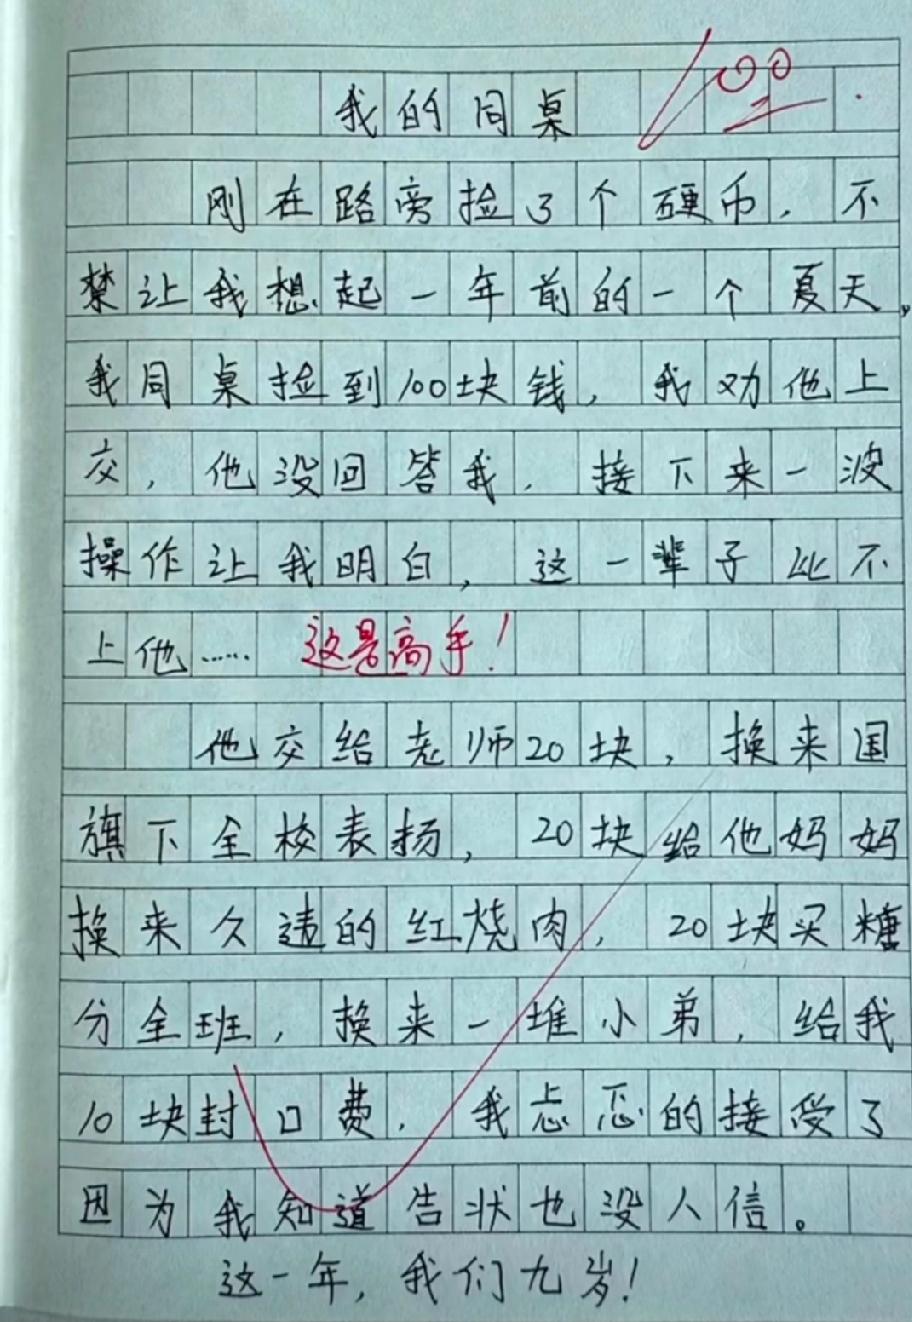 我的同桌 100
刚在路旁捡了个硬币，不
禁让我想起一年前的一个夏天，
我同桌捡到100块钱，我劝他上
交，他没回答我，接下来一波
操作让我明白，这一辈子比不
上他…… 这是高手！
他交给老师20块，换来国
旗下全校表扬，20块给他妈妈
换来久违的红烧肉，20块买糖
分全班，换来一堆小弟，给我
10块封口费，我忐忑的接受了
因为我知道告状也没人信。
这一年，我们九岁！